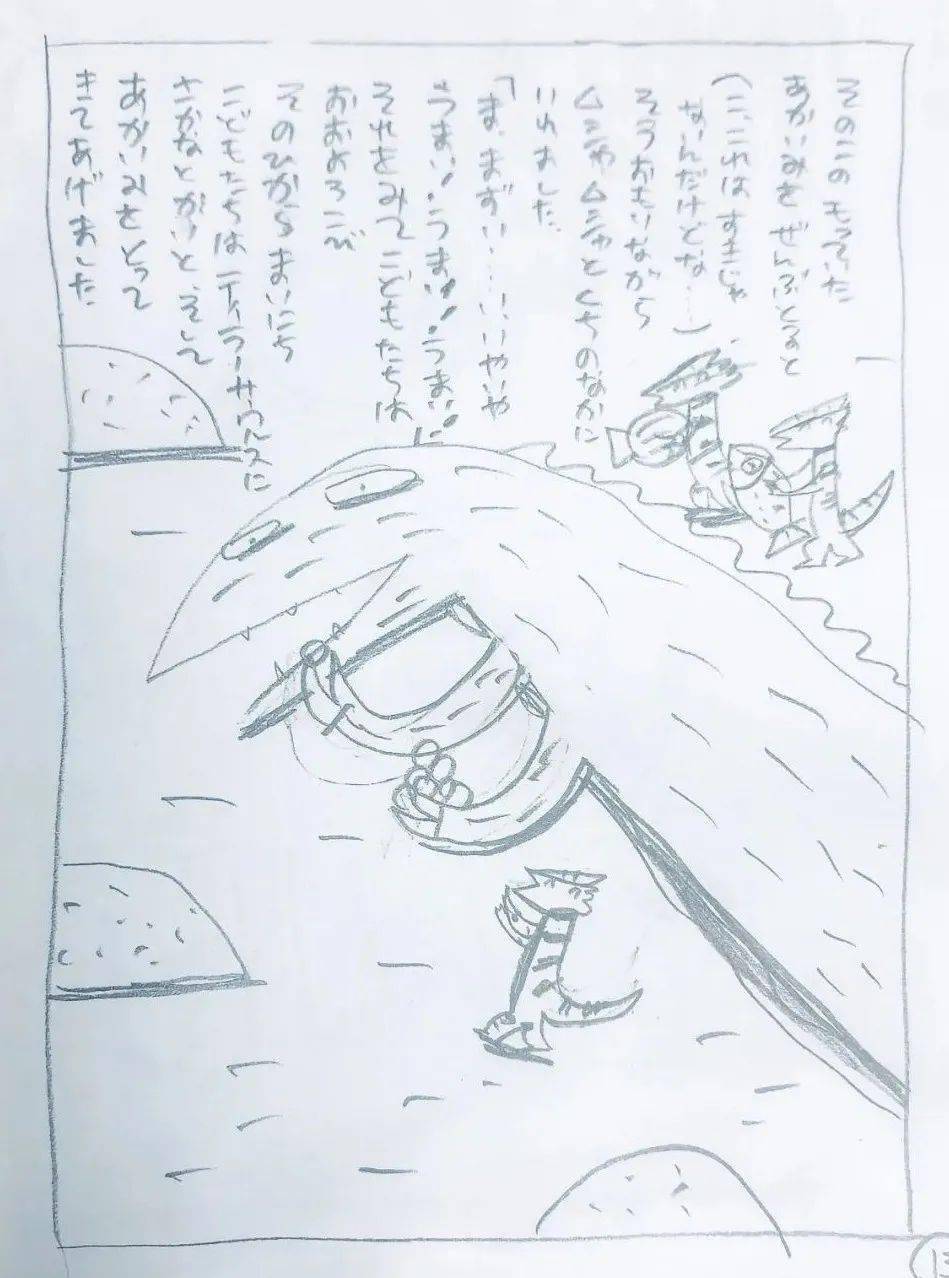 そのこの もっていた
あかいみを ぜんぶとると
(こ、これは すきじゃ
なんだけどな……)
そうおもいながら
ムシャムシャとくちのなかに
いれました。
「ま、まずい……いいやいや
うまい!うまい!うまい!」
それをみて こどもたちは
おおよろこび
そのひから まいにち
こどもたちは ティラノサウルスに
さかなとかいと、そして
あかいみをとって
きてあげました